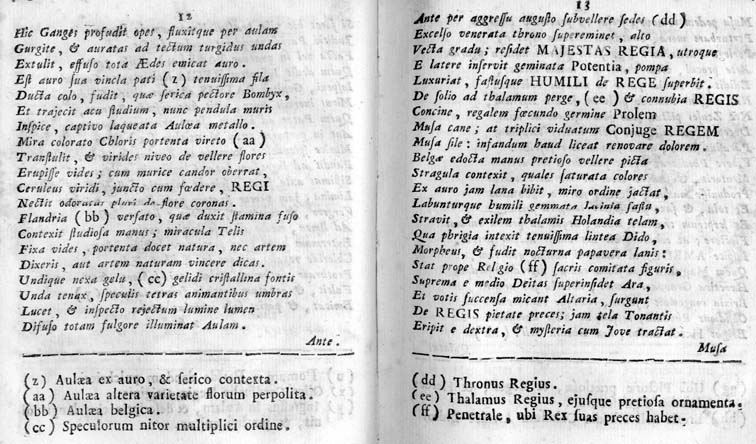 12
Hic Ganges profudit opes, fluxitque per aulam
Gurgite, & auratas ad tectum turgidus undas
Extulit, effuso tota Ædes emicat auro.
Est auro sua vincla pati (z) tenuissima fila
Ducta colo, fudit, quæ serica pectore Bombyx,
Et trajecit acu studium, nunc pendula muris
Inspice, captivo laqueata Aulœa metallo.
Mira colorato Chloris portenta vireto (aa)
Transtulit, & virides niveo de vellere flores
Erupisse vides; cum murice candor oberrat,
Ceruleus viridi, juncto cum fœdere, REGI
Nectit odoratas pluri de flore coronas.
Flandria (bb) versato, quæ duxit stamina fuso
Contexit studiosa manus; miracula Telis
Fixa vides, portenta docet natura, nec artem
Dixeris, aut artem naturam vincere dicas.
Undique nexa gelu, (cc) gelidi cristallina fontis
Unda tenax, speculis tetras animantibus umbras
Lucet, & inspecto rejectum lumine lumen
Difuso totam fulgore illuminat Aulam.
Ante.
(z) Aulæa ex auro, & serico contexta.
(aa) Aulæa altera varietate florum perpolita.
(bb) Aulæa belgica.
(cc) Speculorum nitor multiplici ordine.
13
Ante per aggressu augusto subvellere sedes (dd)
Excelso venerata throno supereminet, alto
Vecta gradu; residet MAJESTAS REGIA, utroque
E latere inservit geminata Potentia, pompa
Luxuriat, fastusque HUMILI de REGE superbit.
De solio ad thalamum perge, (ee) & connubia REGIS
Concine, regalem fœcundo germine Prolem
Musa cane; at triplici viduatum Conjuge REGEM
Musa sile: infandum haud liceat renovare dolorem.
Belgæ edocta manus pretioso vellere picta
Stragula contexit, quales saturata colores
Ex auro jam lana bibit, miro ordine jactat,
Labunturque humili gemmata lavinia fastu,
Stravit, & exilem thalamis Holandia telam,
Qua phrigia intexit tenuissima lintea Dido,
Morpheus, & fudit nocturna papavera lanis:
Stat prope Religio (ff) sacris comitata figuris,
Suprema e medio Deitas superinsidet Ara,
Et votis succensa micant Altaria, surgunt
De REGIS pietate preces; jam tela Tonantis
Eripit e dextra, & mysteria cum Jove tractat.
Musa
(dd) Thronus Regius.
(ee) Thalamus Regius, ejusque pretiosa ornamenta.
(ff) Penetrale, ubi Rex suas preces habet.